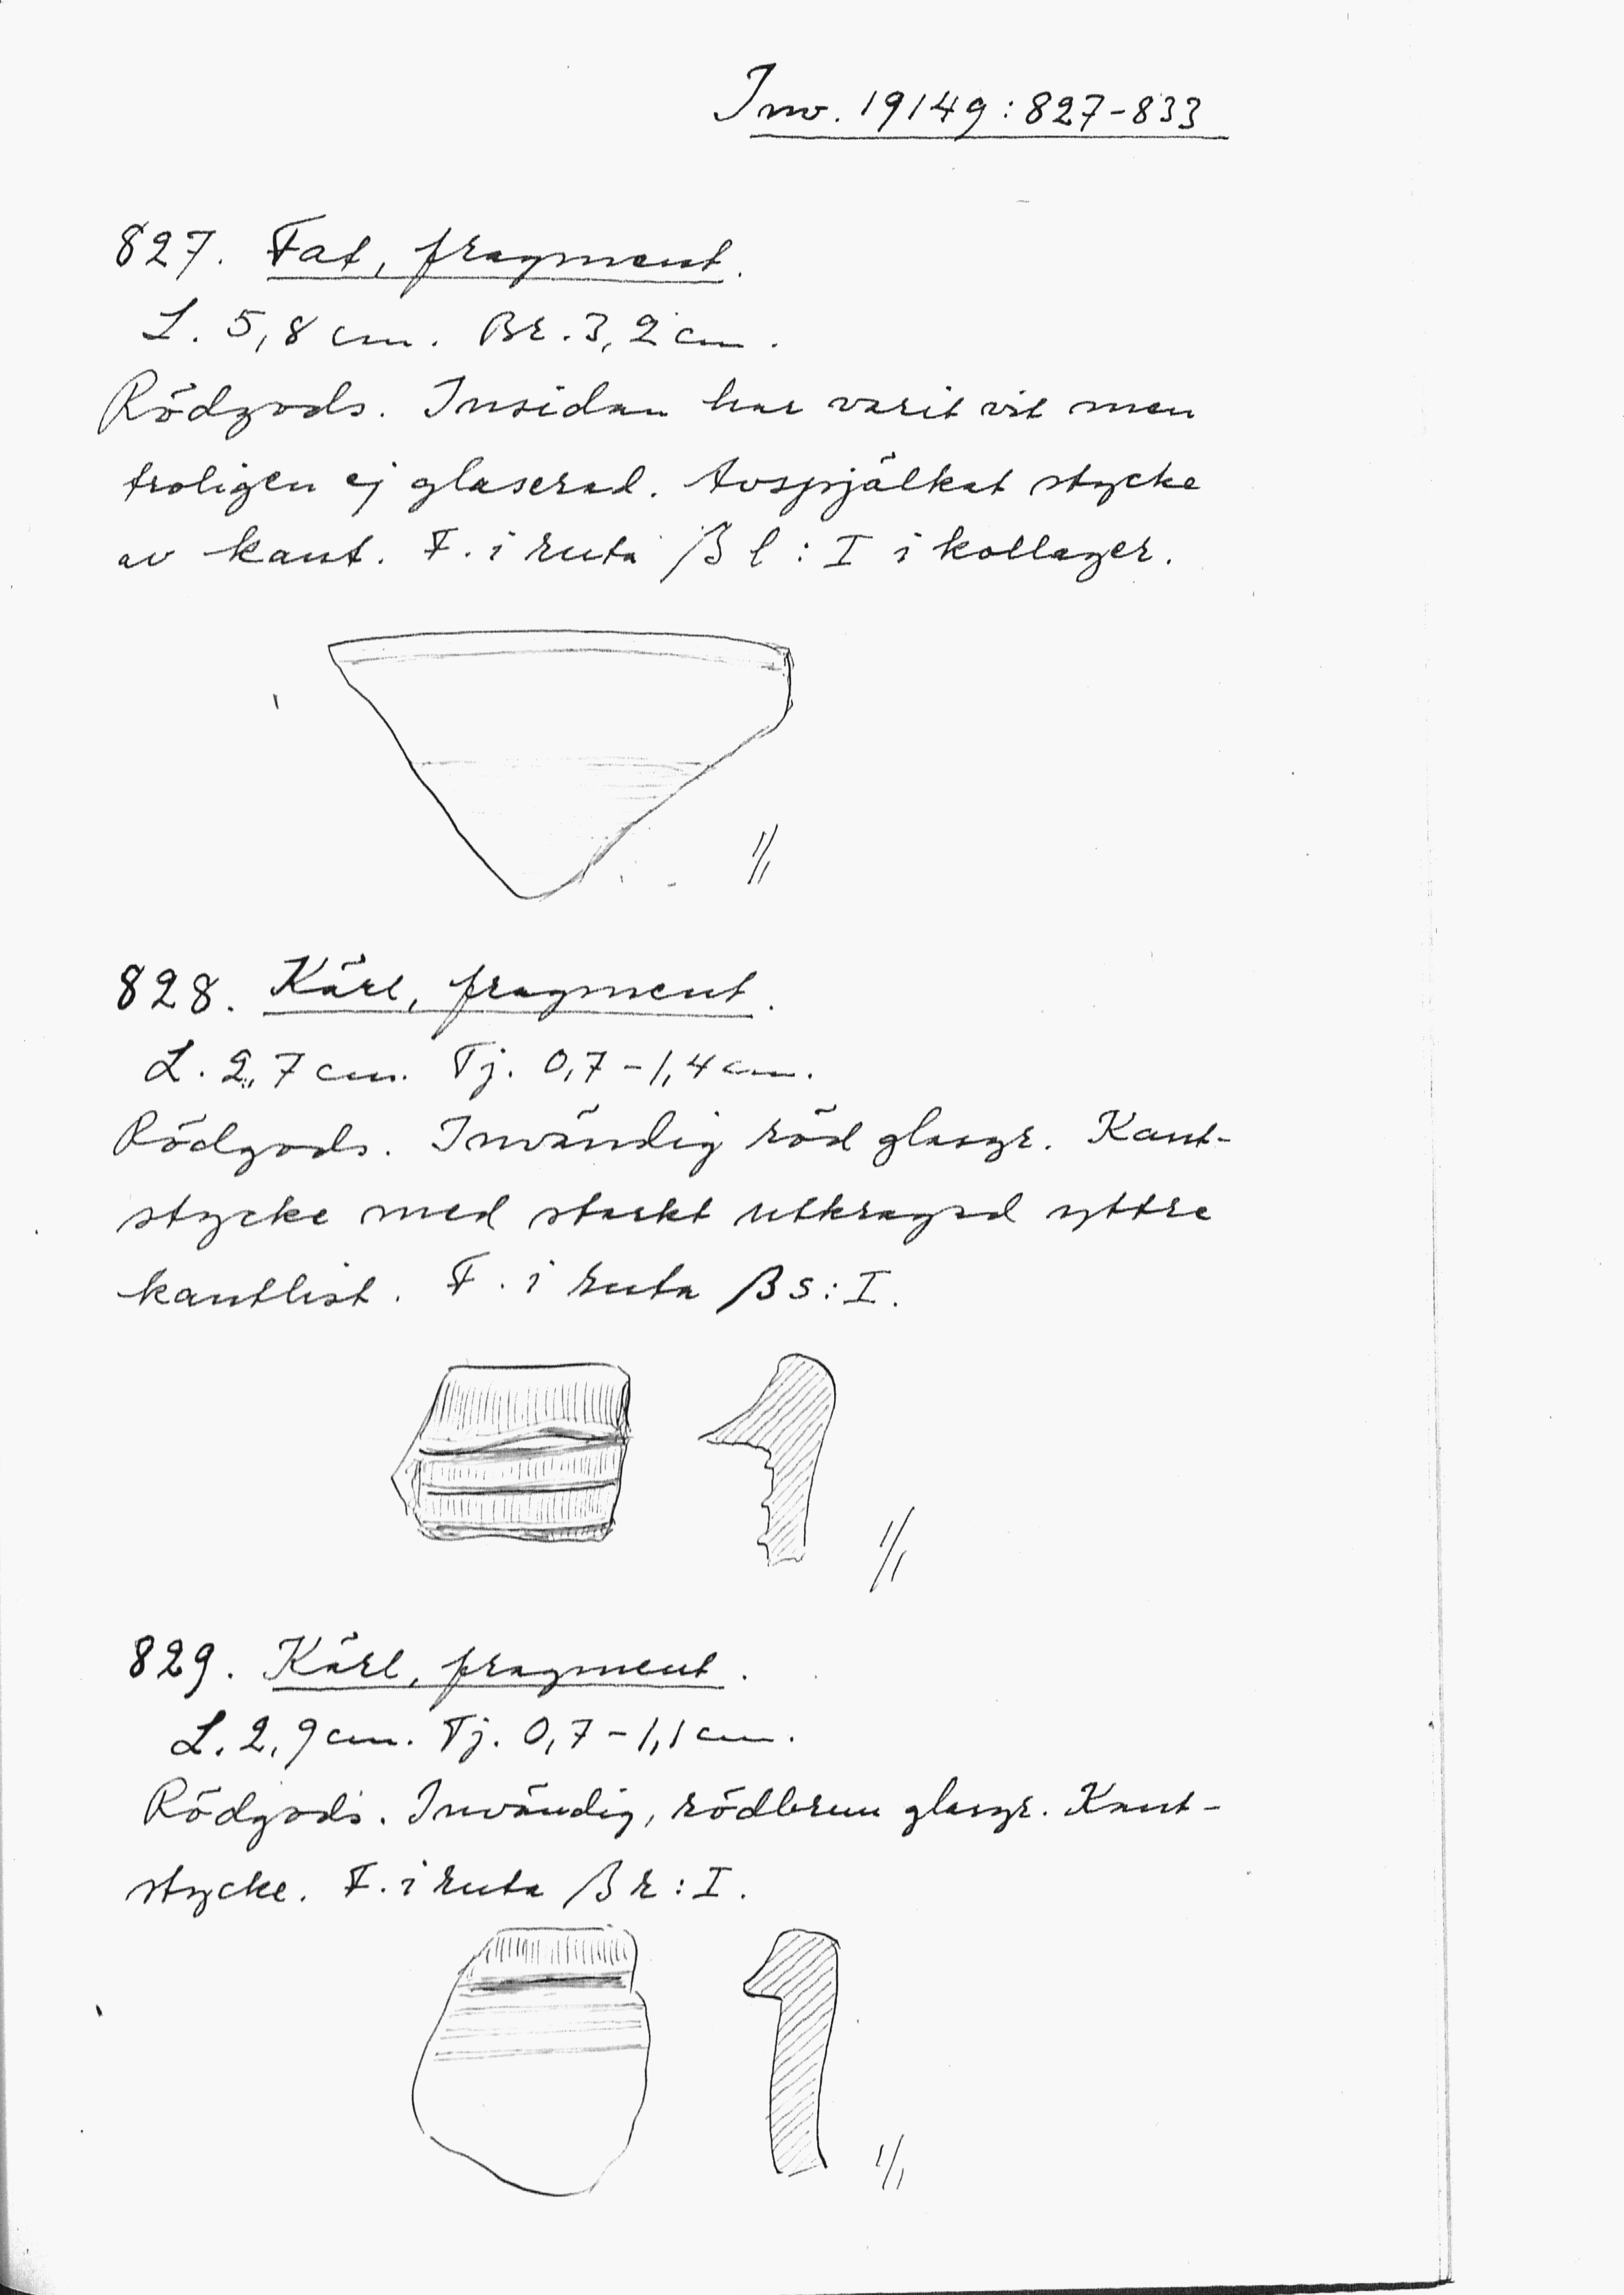 Inv. 19149:827-833
827. Fat, fragment.
L. 5,8 cm. Br. 3,2 cm.
Rödgods. Insidan har varit vit men
troligen ej glaserad. Avspjälkat stycke
av kant. F. i ruta β l : I i kollager.
1/1
828. Kärl, fragment.
L. 2,7 cm. Tj. 0,7-1,4 cm.
Rödgods. Invändig röd glasyr. Kant-
stycke med starkt utkragad yttre
kantlist. F. i ruta β s : I.
1/1
829. Kärl, fragment.
L. 2,9 cm. Tj. 0,7-1,1 cm.
Rödgods. Invändig, rödbrun glasyr. Kant-
stycke. F. i ruta β r : I.
1/1